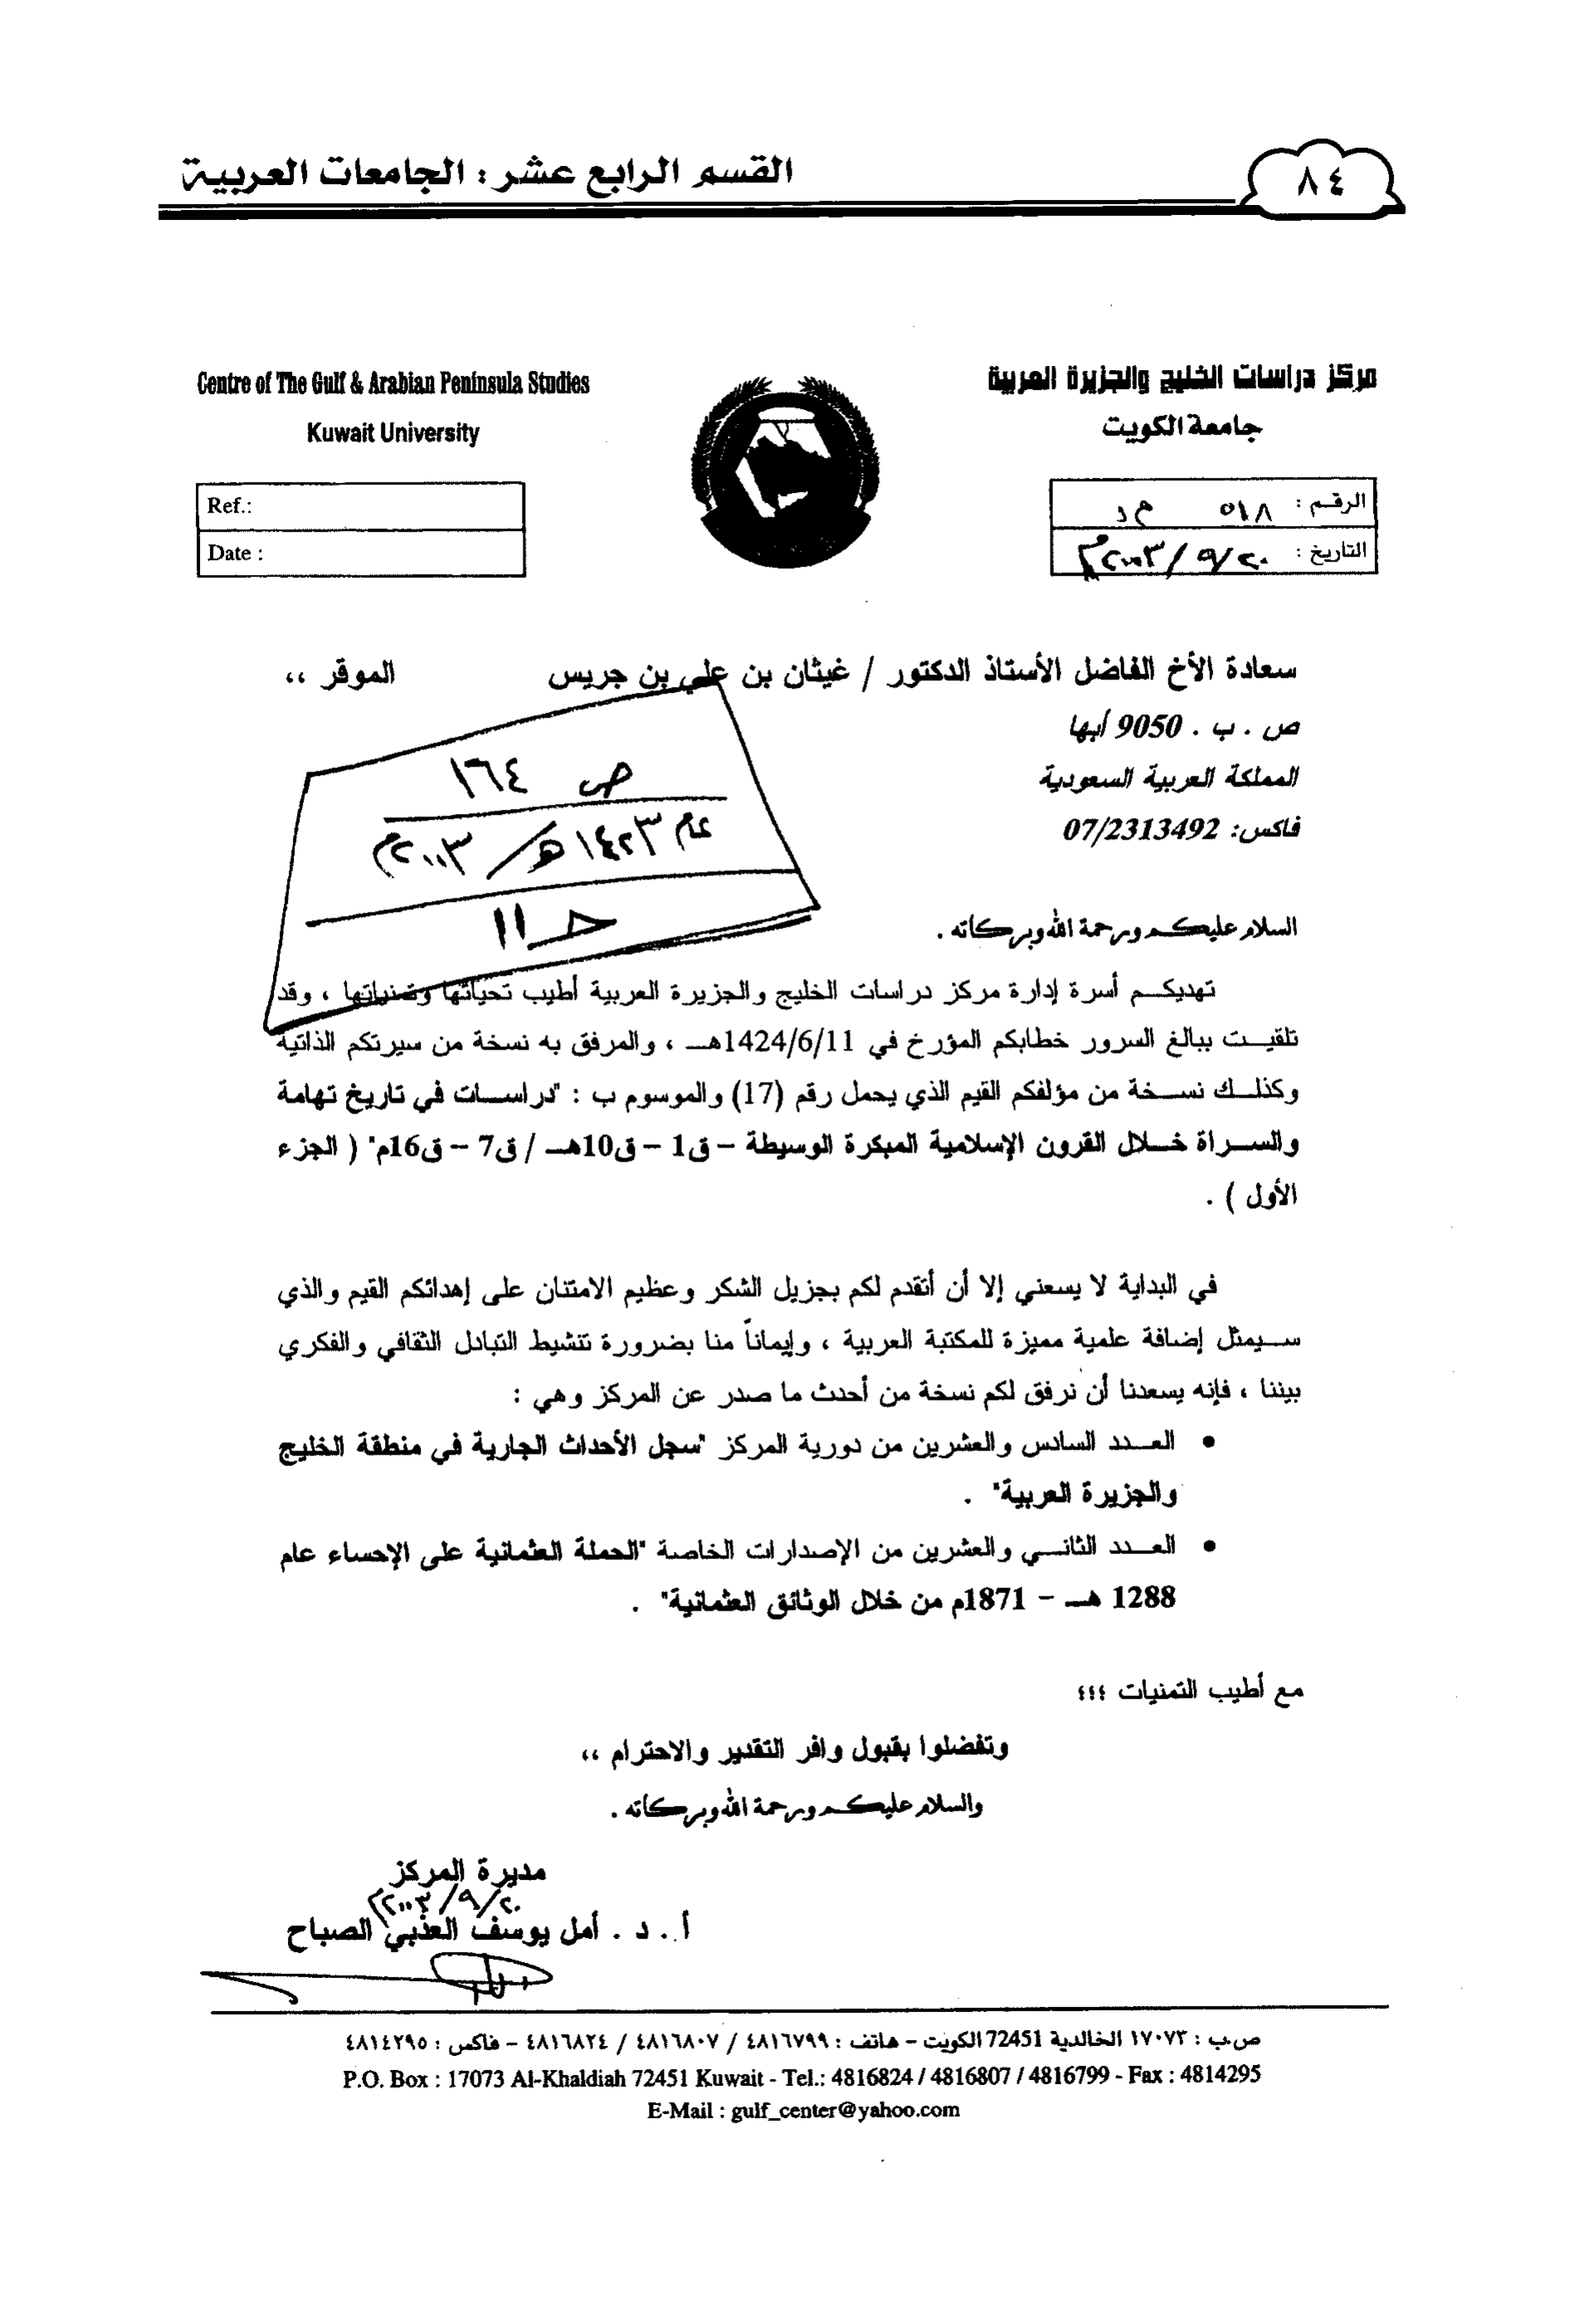 ٨٤
القسم الرابع عشر: الجامعات العربية
مركز دراسات الخليج والجزيرة العربية
جامعة الكويت
Centre of The Gulf & Arabian Peninsula Studies
Kuwait University
الرقم : ٥١٨ م د
التاريخ : ٢٠/٩/٢٠٠٣م
Ref.:
Date :
سعادة الأخ الفاضل الأستاذ الدكتور / غيثان بن علي بن جريس الموقر ،،
ص . ب . 9050 أبها
المملكة العربية السعودية
فاكس: 07/2313492
ص ١٦٤
عام ١٤٢٣هـ / ٢٠٠٣م
حـ ١١
السلام عليكم ورحمة الله وبركاته .
تهديكم أسرة إدارة مركز دراسات الخليج والجزيرة العربية أطيب تحياتها وتمنياتها ، وقد
تلقيت ببالغ السرور خطابكم المؤرخ في 1424/6/11هـ ، والمرفق به نسخة من سيرتكم الذاتية
وكذلك نسخة من مؤلفكم القيم الذي يحمل رقم (17) والموسوم ب : "دراسات في تاريخ تهامة
والسراة خلال القرون الإسلامية المبكرة الوسيطة – ق1 – ق10هـ / ق7 – ق16م" ( الجزء
الأول ) .
في البداية لا يسعني إلا أن أتقدم لكم بجزيل الشكر وعظيم الامتنان على إهدائكم القيم والذي
سيمثل إضافة علمية مميزة للمكتبة العربية ، وإيماناً منا بضرورة تنشيط التبادل الثقافي والفكري
بيننا ، فإنه يسعدنا أن نرفق لكم نسخة من أحدث ما صدر عن المركز وهي :
• العدد السادس والعشرين من دورية المركز "سجل الأحداث الجارية في منطقة الخليج
والجزيرة العربية" .
• العدد الثاني والعشرين من الإصدارات الخاصة "الحملة العثمانية على الإحساء عام
1288 هـ – 1871م من خلال الوثائق العثمانية" .
مع أطيب التمنيات ؛؛؛
وتفضلوا بقبول وافر التقدير والاحترام ،،
والسلام عليكم ورحمة الله وبركاته .
مديرة المركز
٢٠/٩/٢٠٠٣
أ . د . أمل يوسف العذبي الصباح
ص.ب : ١٧٠٧٣ الخالدية 72451 الكويت – هاتف : ٤٨١٦٧٩٩ / ٤٨١٦٨٠٧ / ٤٨١٦٨٢٤ – فاكس : ٤٨١٤٢٩٥
P.O. Box : 17073 Al-Khaldiah 72451 Kuwait - Tel.: 4816824 / 4816807 / 4816799 - Fax : 4814295
E-Mail : gulf_center@yahoo.com